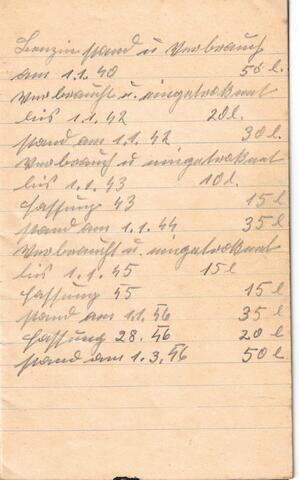 Benzin stand u Verbrauch
am 1.1.40 50 l.
Verbraucht u. eingetroknet
bis 1.1.42 20 l.
Stand am 1.1.42 30 l.
Verbrauch u eingetroknet
bis 1.1.43 10 l.
Fassung 43 15 l
Stand am 1.1.44 35 l
Verbraucht u. eingetroknet
bis 1.1.45 15 l
Fassung 45 15 l
Stand am 1.1.46 35 l
Fassung 28.46 20 l
Stand am 1.3.46 50 l